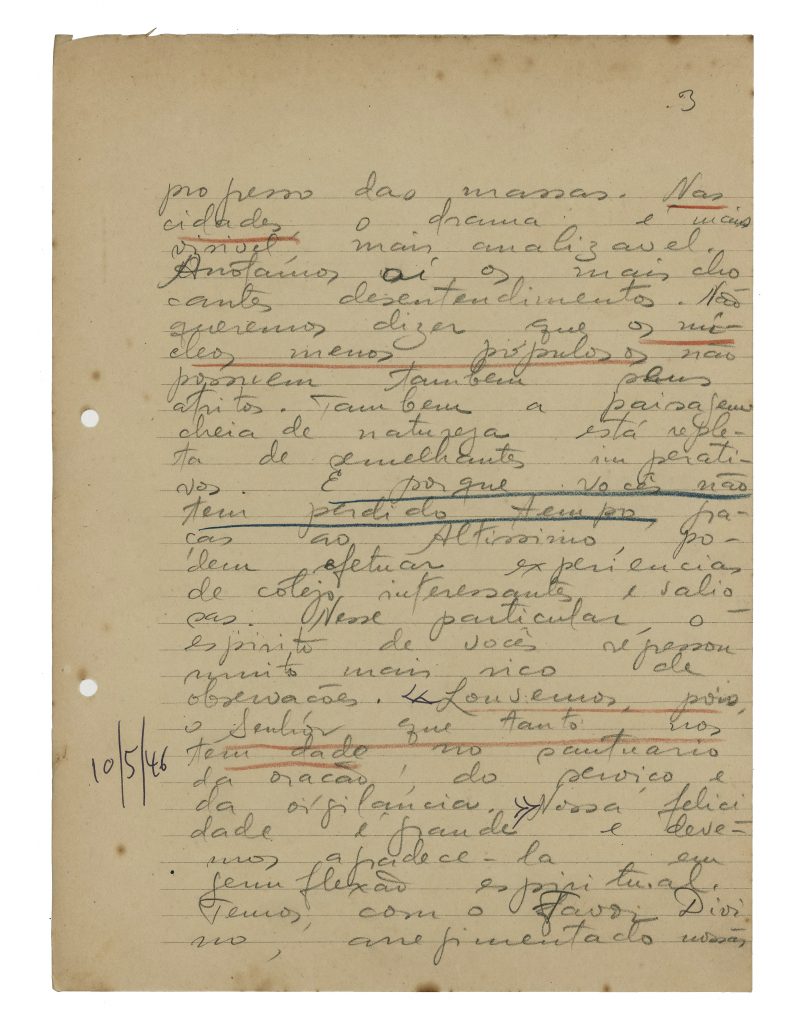 3
progresso das massas. Nas
cidades, o drama é mais
visivel, mais analizavel.
Anotâmos aí os mais cho
cantes desentendimentos. Não
queremos dizer que os nú-
cleos menos pópulosos não
possuem tambem seus
atritos. Tambem a paisagem
cheia de natureza está reple-
ta de semelhantes imperati-
vos. E porque vocês não
tem perdido tempo, gra-
ças ao Altissimo, po-
dem efetuar experiencias
de cotejo interessantes e valio
sas. Nesse particular, o
espirito de vocês regressou
muito mais rico de
observações. « Louvemos, pois,
o Senhor que tanto nos
tem dado no santuario
da oração, do serviço e
10/5/46
da vigilancia. » Nossa felici
dade é grande e deve-
mos agradece-la em
genuflexão espiritual.
Temos, com o Favor Divi
no, arregimentado nossas